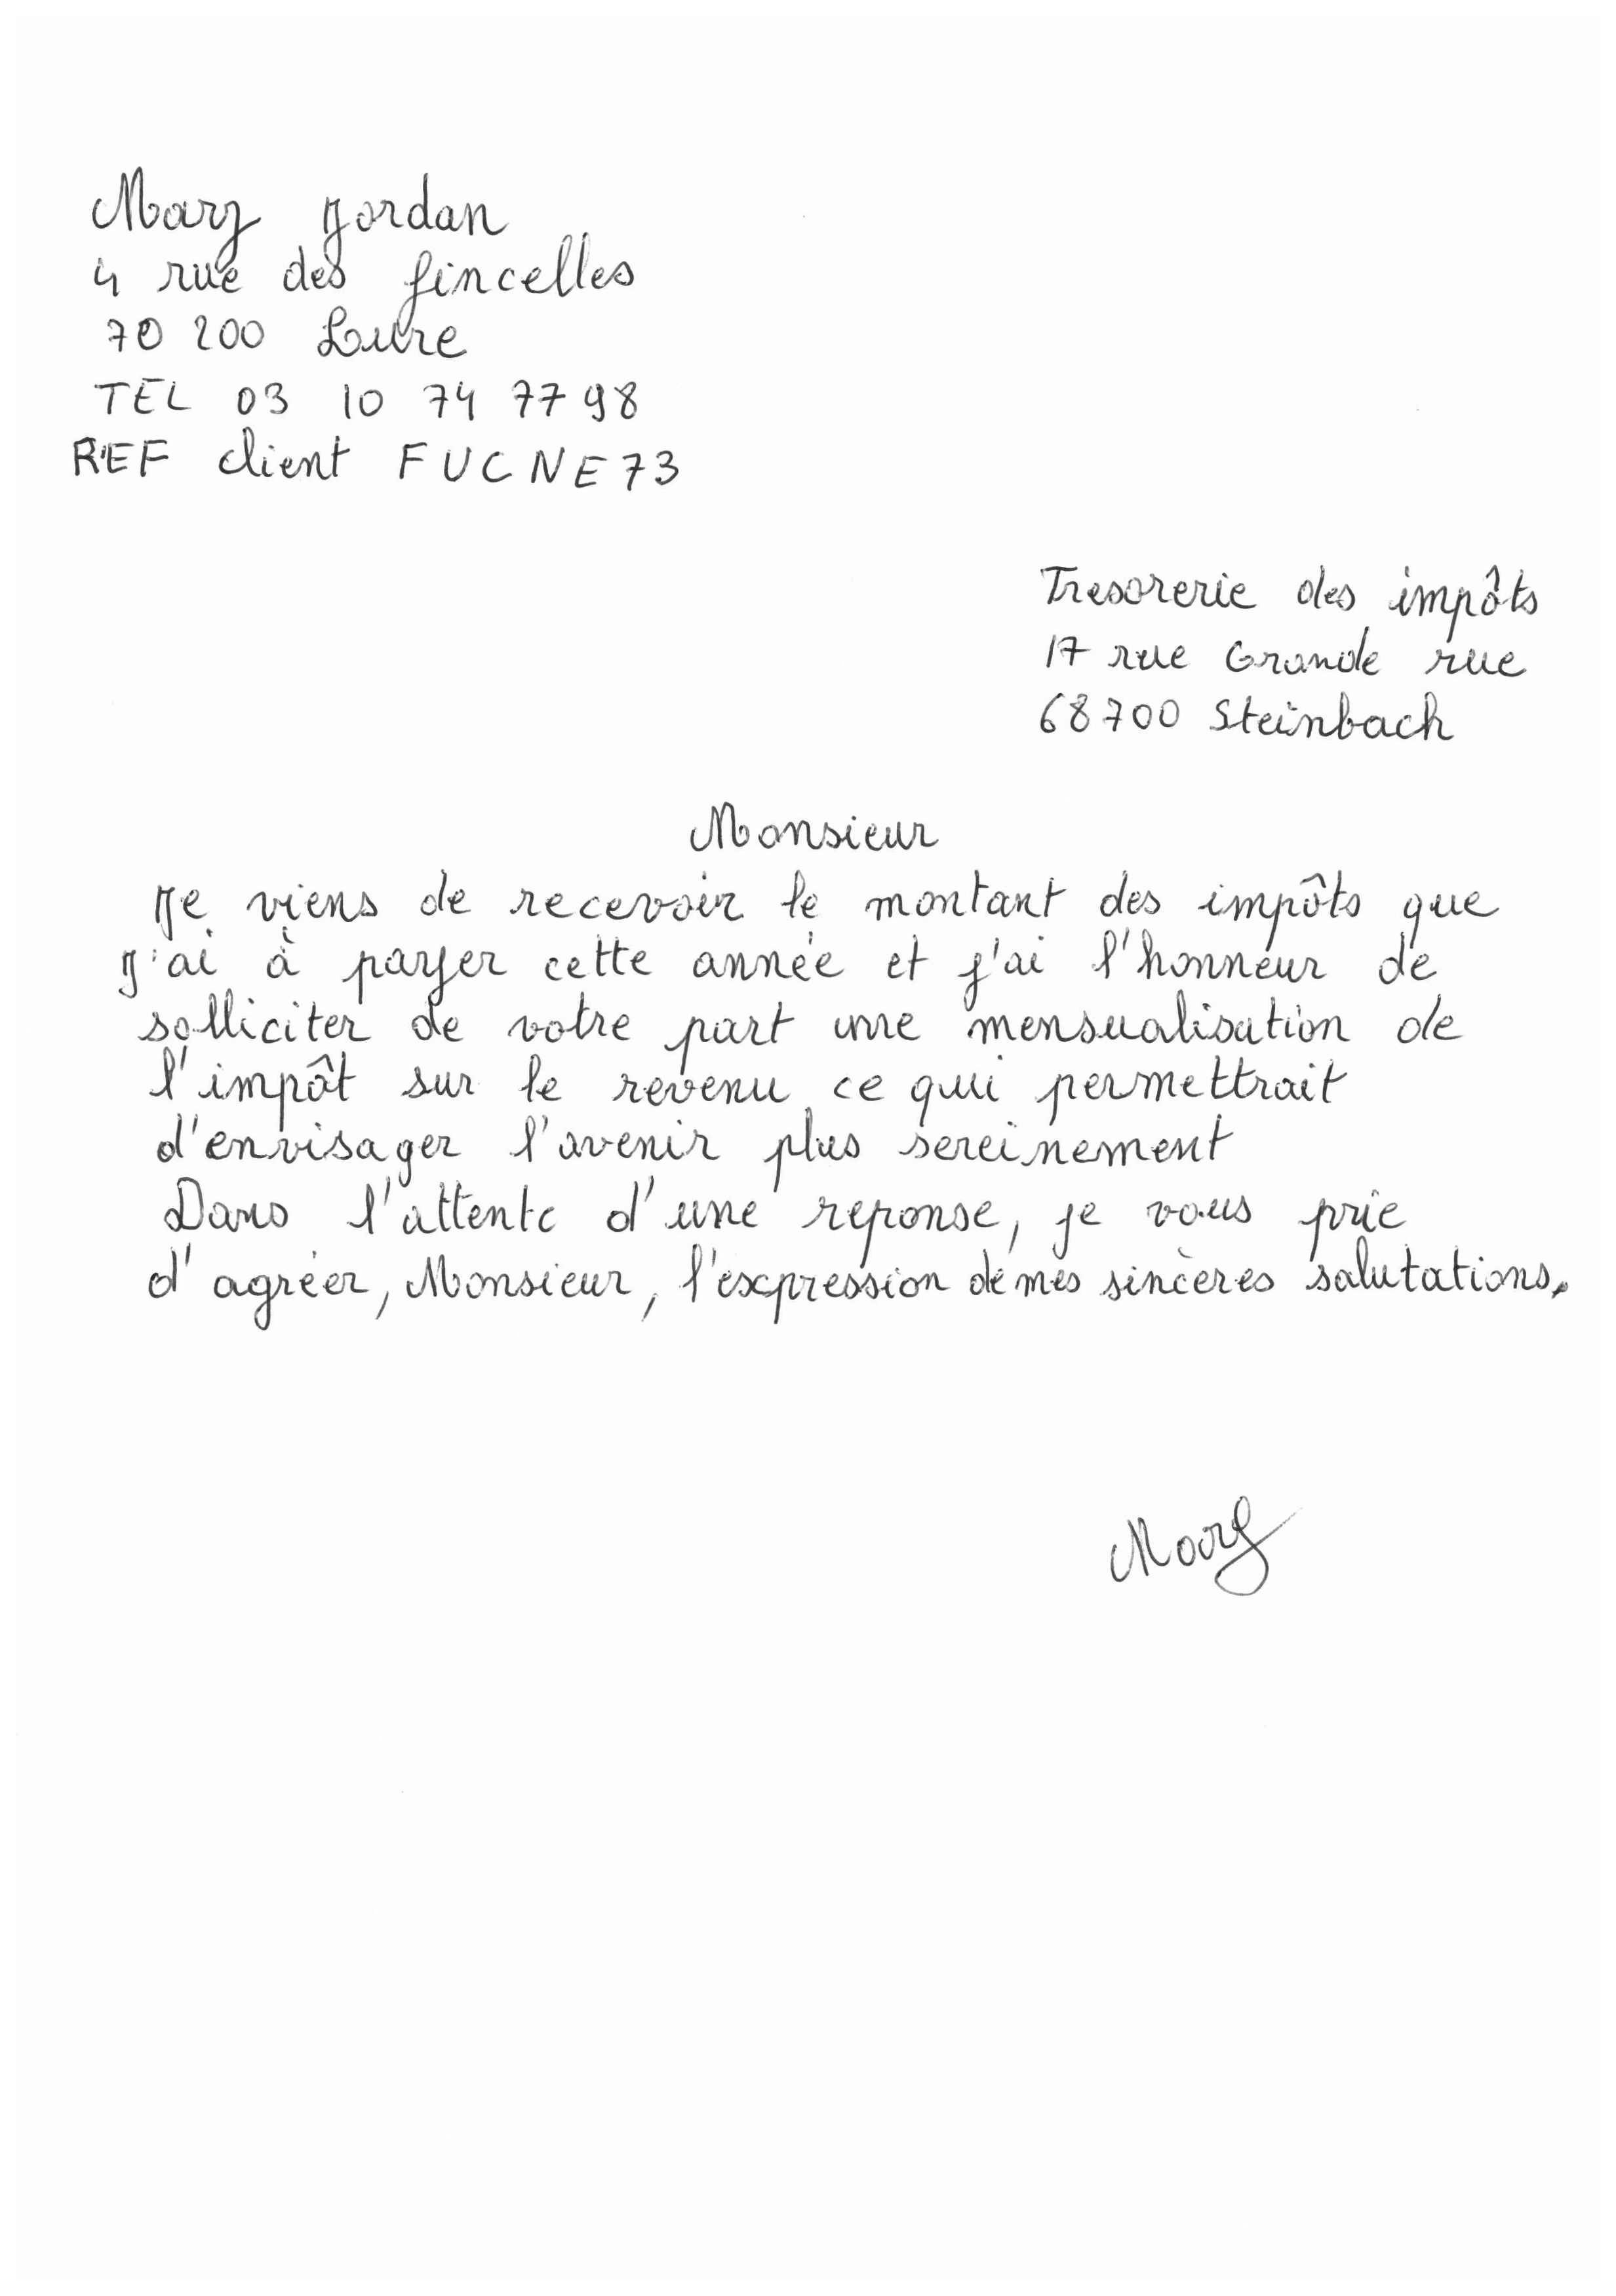 Mary Jordan
4 rue des fincelles
70 200 Lure
TEL 03 10 74 77 98
REF client FUCNE73
Tresorerie des impôts
17 rue Grande rue
68700 Steinbach
Monsieur
Je viens de recevoir le montant des impôts que
J'ai à payer cette année et j'ai l'honneur de
solliciter de votre part une mensualisation de
l'impôt sur le revenu ce qui permettrait
d'envisager l'avenir plus sereinement
Dans l'attente d'une reponse, je vous prie
d'agréer, Monsieur, l'expression de mes sincères salutations.
Mary